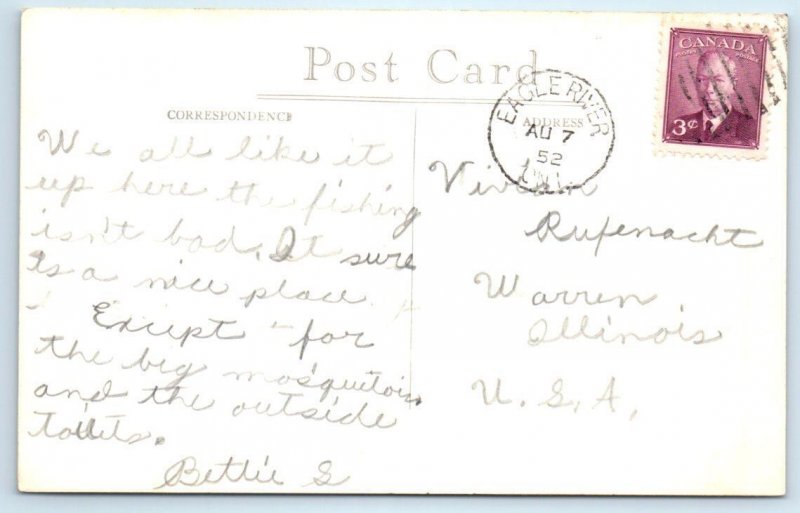 Post Card
CORRESPONDENCE
ADDRESS
EAGLE RIVER
AU 7
52
ONT.
CANADA
POSTES POSTAGE
3¢
We all like it
up here the fishing
isn't bad. It sure
is a nice place
Except for
the big mosquitois.
and the outside
toilets.
Bettie S
Vivian
Rufenacht
Warren
Illinois
U.S.A,